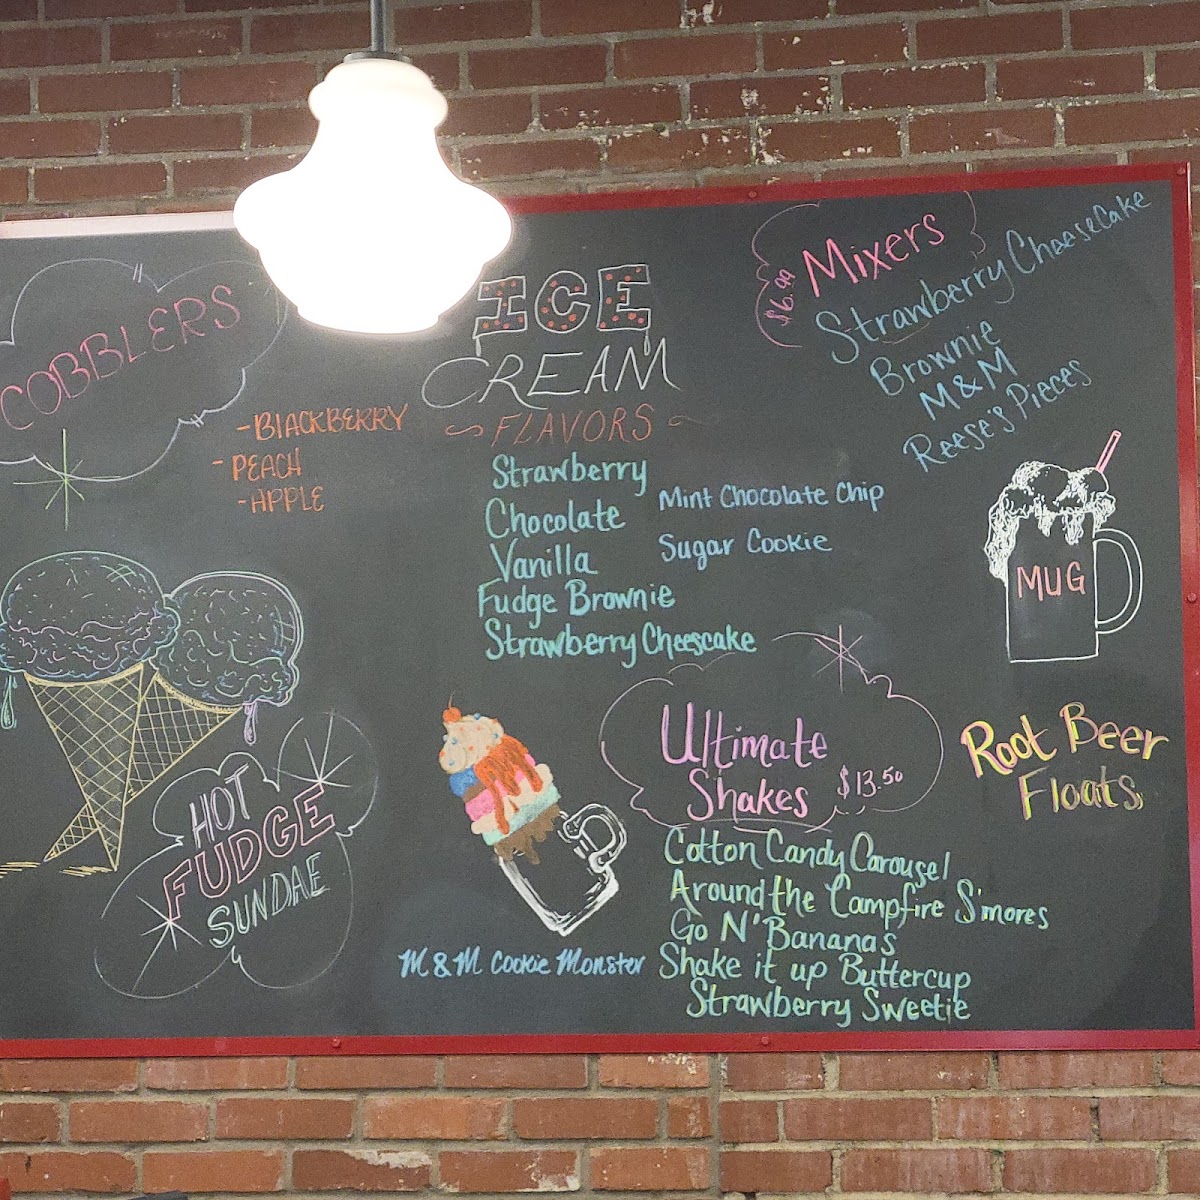 COBBLERS
- BlACKBERRY
- PEACH
- APPLE
ICE
CREAM
~ FLAVORS ~
Strawberry
Chocolate
Vanilla
Fudge Brownie
Strawberry Cheescake
Mint Chocolate Chip
Sugar Cookie
$6.99 Mixers
Strawberry CheeseCake
Brownie
M & M
Reese's Pieces
MUG
Root Beer
Floats
HOT
FUDGE
SUNDAE
Ultimate
Shakes $13.50
Cotton Candy Carousel
Around the Campfire S'mores
Go N' Bananas
Shake it up Buttercup
Strawberry Sweetie
M & M Cookie Monster